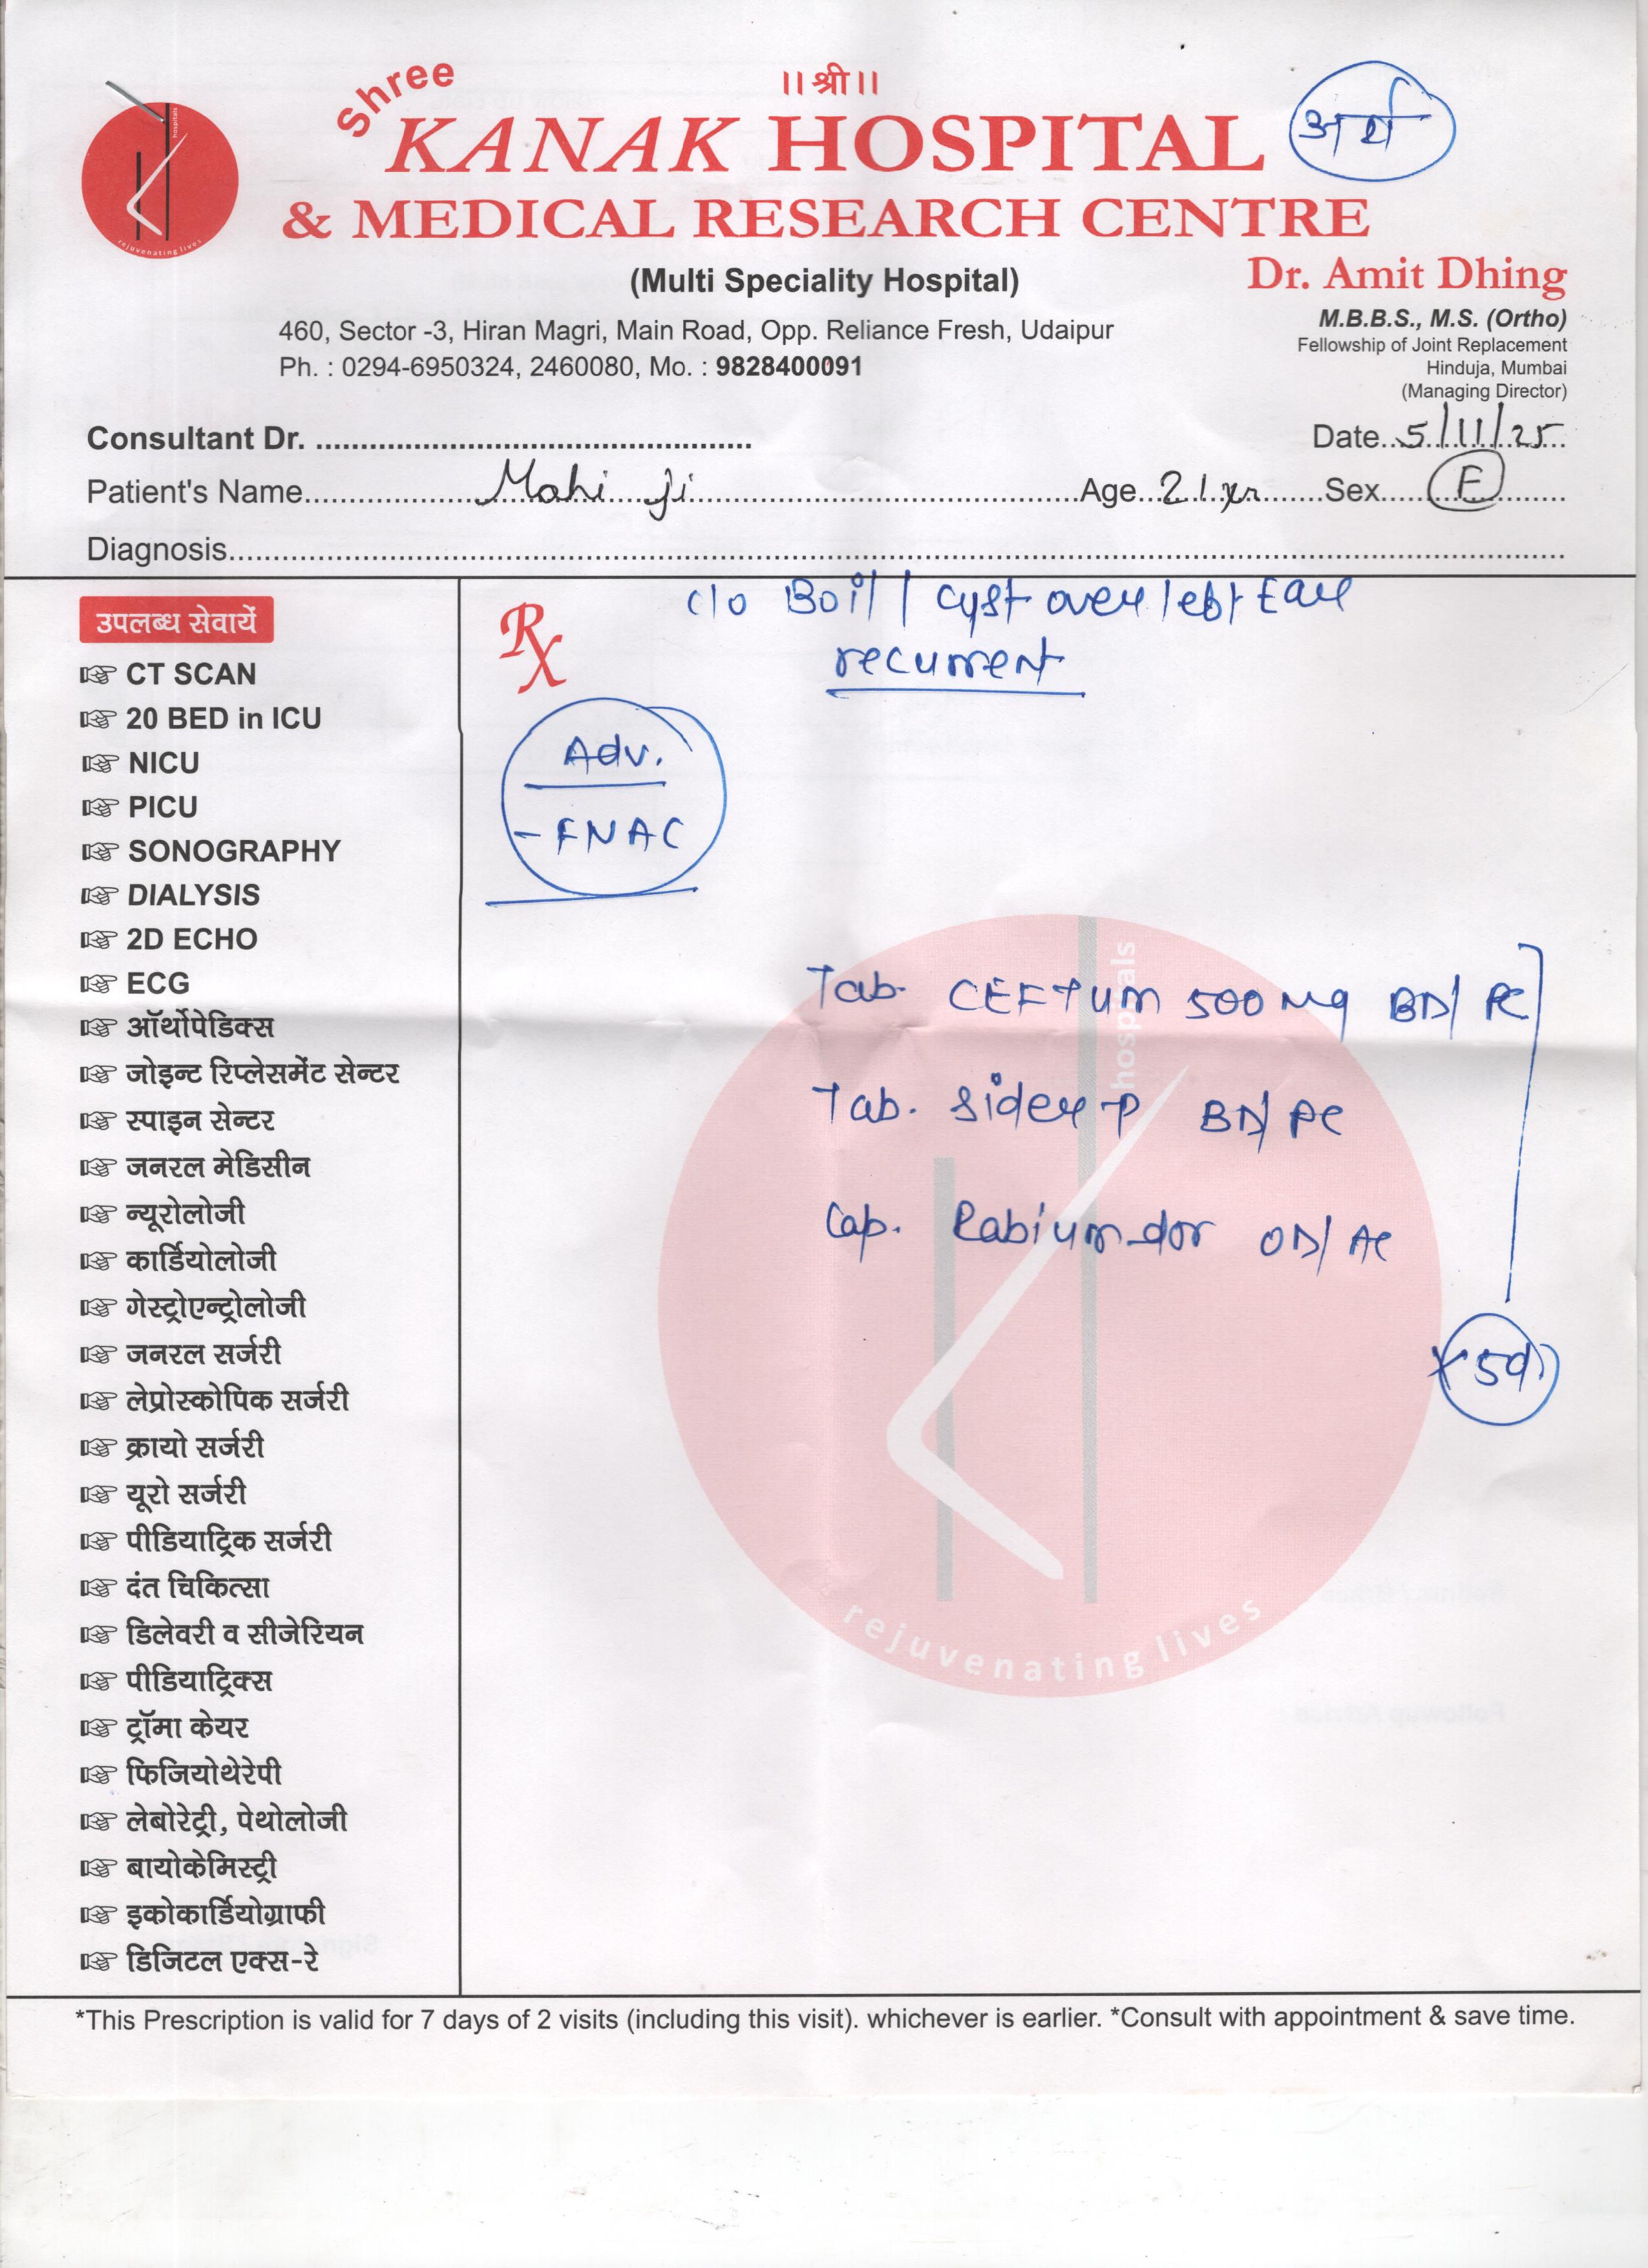 Shree
।।श्री।।
अर्थ
KANAK HOSPITAL
& MEDICAL RESEARCH CENTRE
hospitals
rejuvenating lives
(Multi Speciality Hospital)
Dr. Amit Dhing
M.B.B.S., M.S. (Ortho)
Fellowship of Joint Replacement
Hinduja, Mumbai
(Managing Director)
460, Sector -3, Hiran Magri, Main Road, Opp. Reliance Fresh, Udaipur
Ph. : 0294-6950324, 2460080, Mo. : 9828400091
Consultant Dr. .................................................. Date..5/11/25
Patient's Name.....Mahi ji.....Age..21 yr.....Sex.....F
Diagnosis..........
c/o Boil / cyst over left Ear
recurrent
Adv.
- FNAC
Tab. CEFTUM 500 mg BD/ PC
Tab. Sider P BD/ PC
Cap. Rabium-dsr OD/ AC
x 5d
उपलब्ध सेवायें
CT SCAN
20 BED in ICU
NICU
PICU
SONOGRAPHY
DIALYSIS
2D ECHO
ECG
ऑर्थोपेडिक्स
जोइन्ट रिप्लेसमेंट सेन्टर
स्पाइन सेन्टर
जनरल मेडिसीन
न्यूरोलोजी
कार्डियोलोजी
गेस्ट्रोएन्ट्रोलोजी
जनरल सर्जरी
लेप्रोस्कोपिक सर्जरी
क्रायो सर्जरी
यूरो सर्जरी
पीडियाट्रिक सर्जरी
दंत चिकित्सा
डिलेवरी व सीजेरियन
पीडियाट्रिक्स
ट्रॉमा केयर
फिजियोथेरेपी
लेबोरेट्री, पेथोलोजी
बायोकेमिस्ट्री
इकोकार्डियोग्राफी
डिजिटल एक्स-रे
hospitals
rejuvenating lives
*This Prescription is valid for 7 days of 2 visits (including this visit). whichever is earlier. *Consult with appointment & save time.